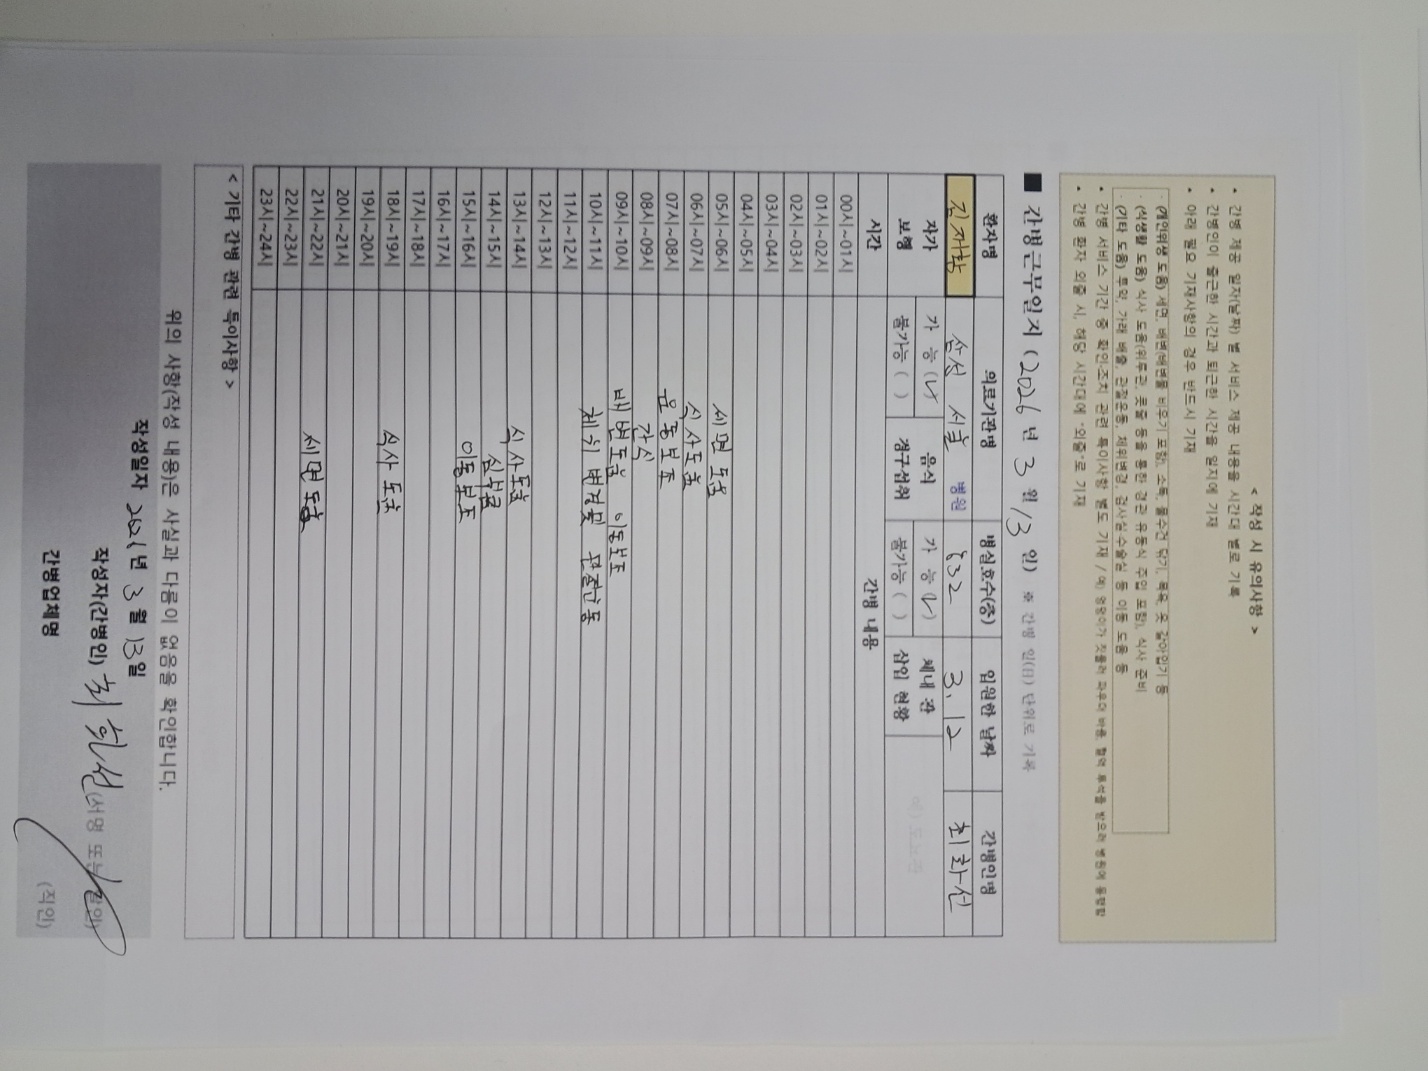 < 작성 시 유의사항 >
• 간병 제공 일자(날짜) 별 서비스 제공 내용을 시간대 별로 기록
• 간병인이 출근한 시간과 퇴근한 시간을 일지에 기재
• 아래 필요 기재사항의 경우 반드시 기재
· (개인위생 도움) 세면, 배변(배변물 비우기 포함), 소독, 물수건 닦기, 목욕, 옷 갈아입기 등
· (식생활 도움) 식사 도움(위루관, 콧줄 등을 통한 경관 유동식 주입 포함), 식사 준비
· (기타 도움) 투약, 가래 배출, 관절운동, 체위변경, 검사실·수술실 등 이동 도움 등
• 간병 서비스 기간 중 확인·조치 관련 특이사항 별도 기재 / 예)
• 간병 환자 외출 시, 해당 시간대에 '외출'로 기재
■ 간병근무일지 (2026 년 3 월 13 일) ※ 간병 일(日) 단위로 기록
환자명 의료기관명 병실호수(층) 입원한 날짜 간병인명
삼성 서울 병원 832 3. 12 최화선
자가 보행 가 능 (✓) 불가능 ( ) 음식 경구섭취 가 능 (✓) 불가능 ( ) 체내 관 삽입 현황
시간 간병 내용
00시~01시
01시~02시
02시~03시
03시~04시
04시~05시
05시~06시 세면 도움
06시~07시 식사도움
07시~08시 운동보조
08시~09시 간식
09시~10시 배변도움 이동보조
10시~11시 체위변경및 관절운동
11시~12시
12시~13시
13시~14시 식사도움
14시~15시
15시~16시 이동보조
16시~17시
17시~18시
18시~19시 식사 도움
19시~20시
20시~21시
21시~22시 세면도움
22시~23시
23시~24시
< 기타 간병 관련 특이사항 >
위의 사항(작성 내용)은 사실과 다름이 없음을 확인합니다.
작성일자 2026년 3 월 13일
작성자(간병인) 최화선 (서명 또는 날인)
간병업체명 (직인)